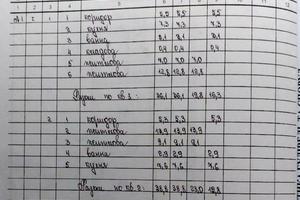 1 2 3 4 5 6 7 8 9 10 11 12
1 1 коридор 5,5 5,5
2 кухня 7,3 7,3
3 ванна 3,1 3,1
4 кладова 0,4 0,4
5 житлова 7,0 7,0 7,0
6 житлова 12,8 12,8 12,8
Разом по кв. 1: 36,1 36,1 19,8 16,3
2 1 коридор 5,3 5,3 5,3
2 житлова 13,9 13,9 13,9
3 житлова 9,1 9,1 9,1
4 ванна 2,9 2,9
5 кухня 7,6 7,6
Разом по кв. 2: 38,8 38,8 23,0 15,8